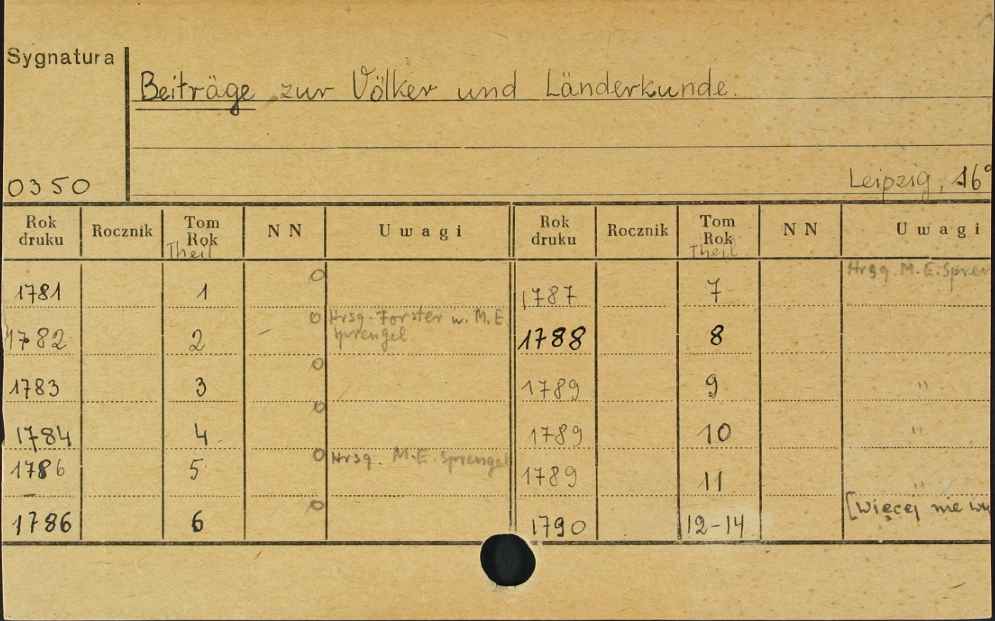 Sygnatura
Beiträge zur Völker und Länderkunde.
0350
Leipzig, 16°
Rok druku Rocznik Tom Rok Theil NN Uwagi Rok druku Rocznik Tom Rok Theil NN Uwagi
1781 1 o 1787 7 Hrsg. M.E. Spren
1782 2 o Hrsg. Forster u. M.E. Sprengel 1788 8
1783 3 o 1789 9 "
1784 4 o 1789 10 "
1786 5 o Hrsg. M.E. Sprengel 1789 11 "
1786 6 o 1790 12-14 [Więcej nie wy